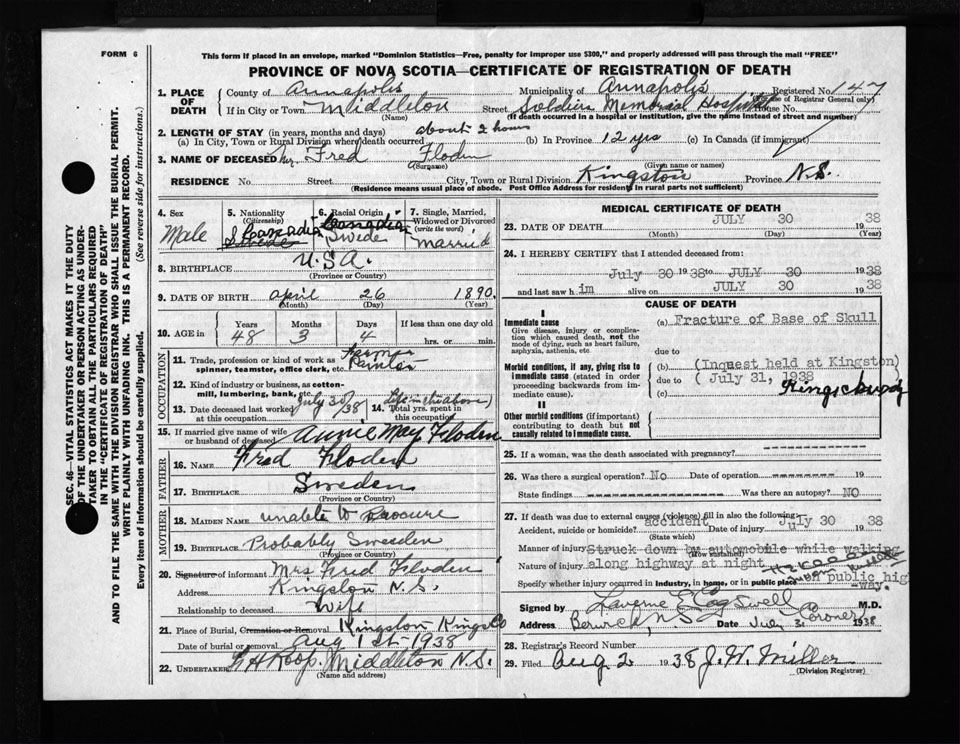 FORM 6
This form if placed in an envelope, marked "Dominion Statistics—Free, penalty for improper use $300," and properly addressed will pass through the mail "FREE"
PROVINCE OF NOVA SCOTIA—CERTIFICATE OF REGISTRATION OF DEATH
SEC. 46—VITAL STATISTICS ACT MAKES IT THE DUTY
OF THE UNDERTAKER OR PERSON ACTING AS UNDER-
TAKER TO OBTAIN ALL THE PARTICULARS REQUIRED
IN THE "CERTIFICATE OF REGISTRATION OF DEATH"
AND TO FILE THE SAME WITH THE DIVISION REGISTRAR WHO SHALL ISSUE THE BURIAL PERMIT.
WRITE PLAINLY WITH UNFADING INK. THIS IS A PERMANENT RECORD.
Every item of information should be carefully supplied. (See reverse side for instructions.)
1. PLACE OF DEATH County of Annapolis Municipality of Annapolis Registered No. 147
(Use of Registrar General only)
If in City or Town Middleton Street Soldiers Memorial Hospital House No.
(Name) (If death occurred in a hospital or institution, give the name instead of street and number)
2. LENGTH OF STAY (in years, months and days) about 2 hours
(a) In City, Town or Rural Division where death occurred (b) In Province 12 yrs (c) In Canada (if immigrant)
3. NAME OF DECEASED Mr. Fred Floden
(Surname) (Given name or names)
RESIDENCE No. Street City, Town or Rural Division Kingston Province N.S.
(Residence means usual place of abode. Post Office Address for resident in rural parts not sufficient)
4. Sex Male
5. Nationality (Citizenship) Canadian Swede
6. Racial Origin Canadian Swede
7. Single, Married, Widowed or Divorced (write the word) Married
8. BIRTHPLACE U.S.A.
(Province or Country)
9. DATE OF BIRTH April 26 1890.
(Month) (Day) (Year)
10. AGE in Years Months Days If less than one day old
48 3 4 hrs. or min.
OCCUPATION
11. Trade, profession or kind of work as spinner, teamster, office clerk, etc. Farmer Painter
12. Kind of industry or business, as cotton-mill, lumbering, bank, etc.
13. Date deceased last worked at this occupation July 30/38
14. Total yrs. spent in this occupation
15. If married give name of wife or husband of deceased Annie May Floden
FATHER
16. NAME Fred Floden
17. BIRTHPLACE Sweden
(Province or Country)
MOTHER
18. MAIDEN NAME unable to Procure
19. BIRTHPLACE Probably Sweeden
(Province or Country)
20. Signature of informant Mrs Fred Floden
Address Kingston N.S.
Relationship to deceased Wife
21. Place of Burial, Cremation or Removal Kingston Kings Co
Date of burial or removal Aug 1st 1938
22. UNDERTAKER Middleton N.S.
(Name and address)
MEDICAL CERTIFICATE OF DEATH
23. DATE OF DEATH JULY 30 1938
(Month) (Day) (Year)
24. I HEREBY CERTIFY that I attended deceased from:
July 30 1938 to JULY 30 1938
and last saw him alive on JULY 30 1938
CAUSE OF DEATH
I
Immediate cause (a) Fracture of Base of Skull
Give disease, injury or complication which caused death, not the mode of dying, such as heart failure, asphyxia, asthenia, etc
due to
Morbid conditions, if any, giving rise to immediate cause (stated in order proceeding backwards from immediate cause).
(b) (Inquest held at Kingston)
due to (July 31, 1938
(c)
II
Other morbid conditions (if important) contributing to death but not causally related to immediate cause.
25. If a woman, was the death associated with pregnancy?
26. Was there a surgical operation? NO Date of operation 19
State findings Was there an autopsy? NO
27. If death was due to external causes (violence) fill in also the following:
Accident, suicide or homicide? accident Date of injury July 30 1938
(State which)
Manner of injury Struck down by automobile while walking
(How sustained)
Nature of injury along highway at night
Specify whether injury occurred in industry, in home, or in public place public highway.
Signed by Laverne E Cogswell M.D.
Coroner
Address Berwick, N.S. Date July 31 1938
28. Registrar's Record Number
29. Filed Aug 2 1938 J. W. Miller
(Division Registrar)